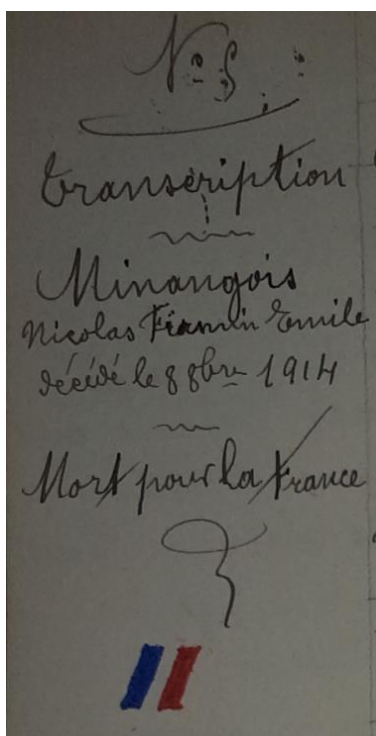 N° 5
transcription
Minangois
Nicolas Firmin Emile
décédé le 8 8bre 1914
Mort pour la France